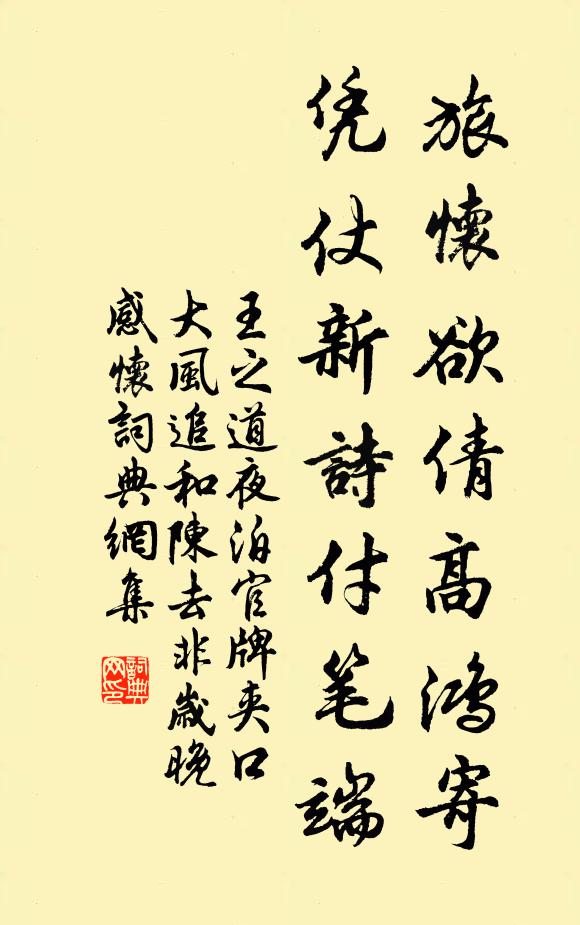 旅懷欲倩高鴻寄
凭仗新詩付笔端
王之道夜泊官牌夾口
大風追和陳去非歲晚
感懷詞典網集
詞典
网印